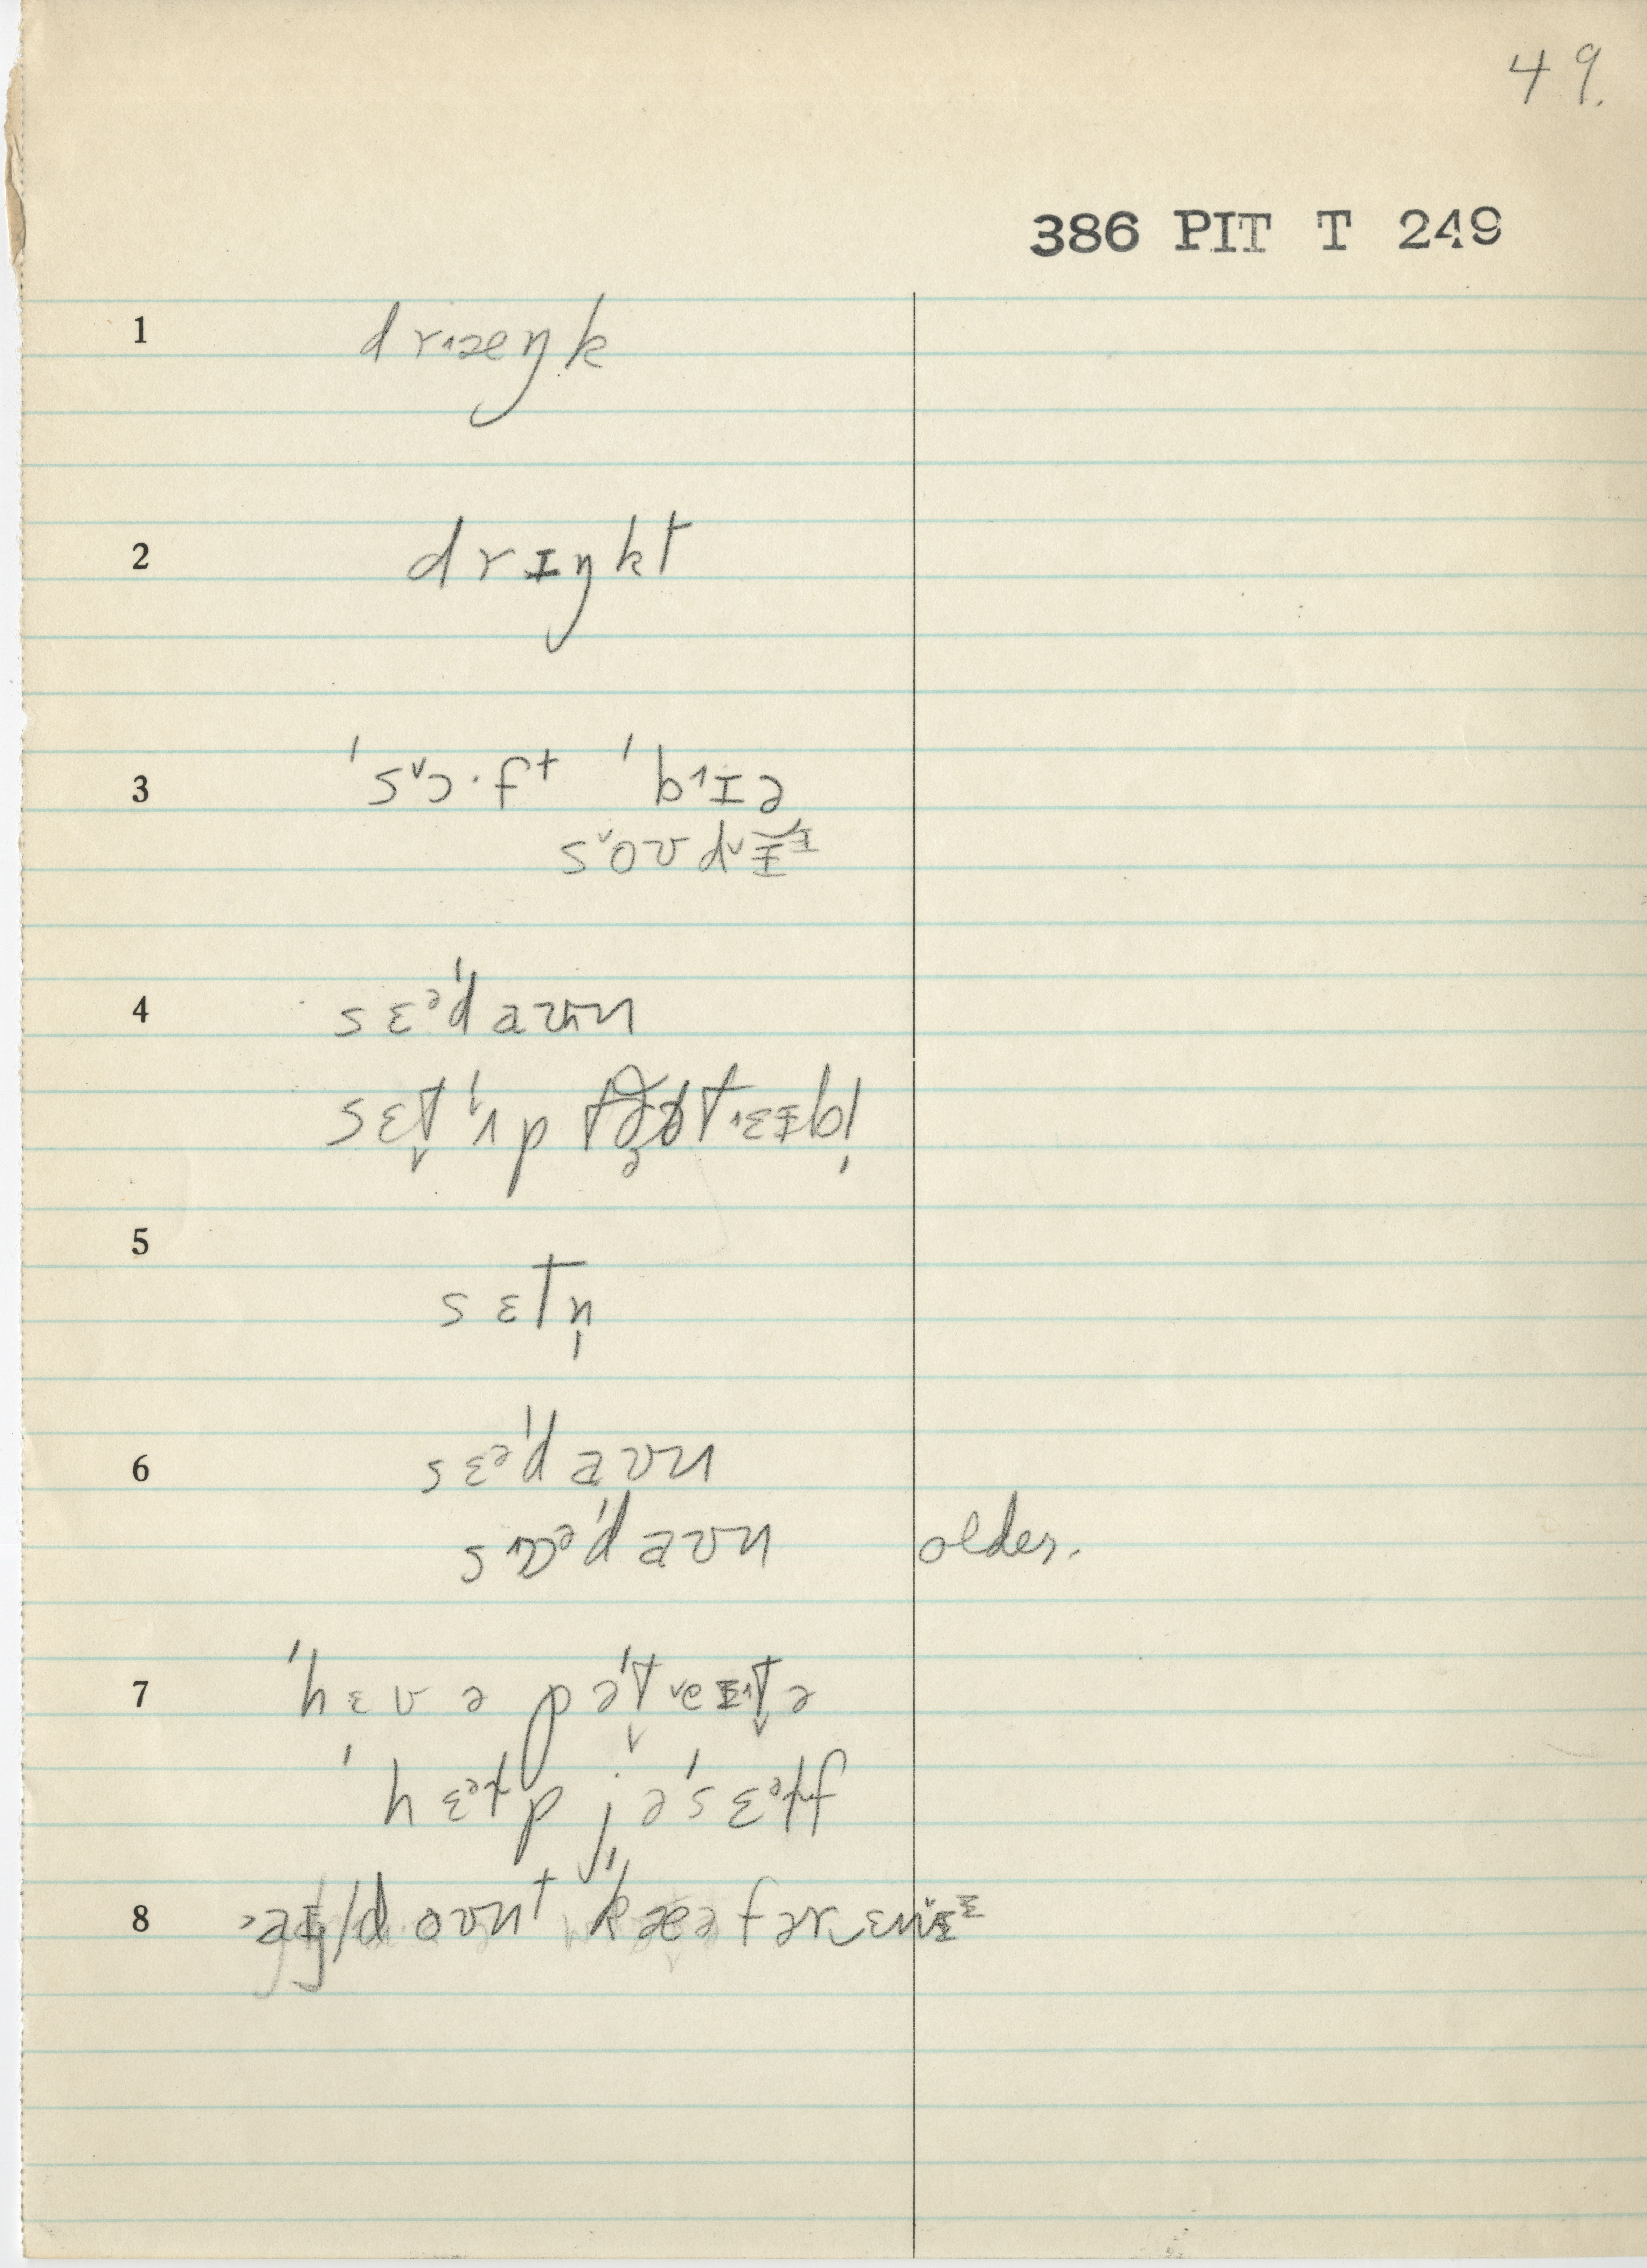 49.
386 PIT T 249
1 drɪ˄æŋk
2 drɪŋkt
3 ˈsɔ˅·ft ˈbɪ˄ə
sˈoʊdɪ
4 sɛᵊˈdaʊn
sɛt ˈʌp
5 sɛtn̩
6 sɛᵊˈdaʊn
ˈdaʊn older.
7 ˈhɛʊ ə pəˈteɪtə
ˈhɛᵊɫp jəˈsɛᵊɫf
8 doʊnt ˈkæə fər‿ɛnɪ